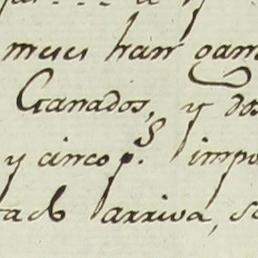 meses han gana
Ganados, y dos
y cinco p.s impo
tado arriva, se